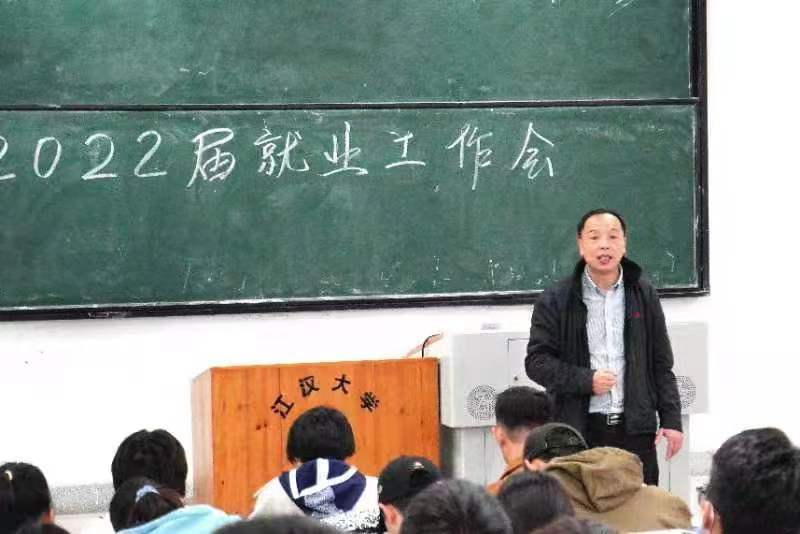 2022届就业工作会
江汉大学